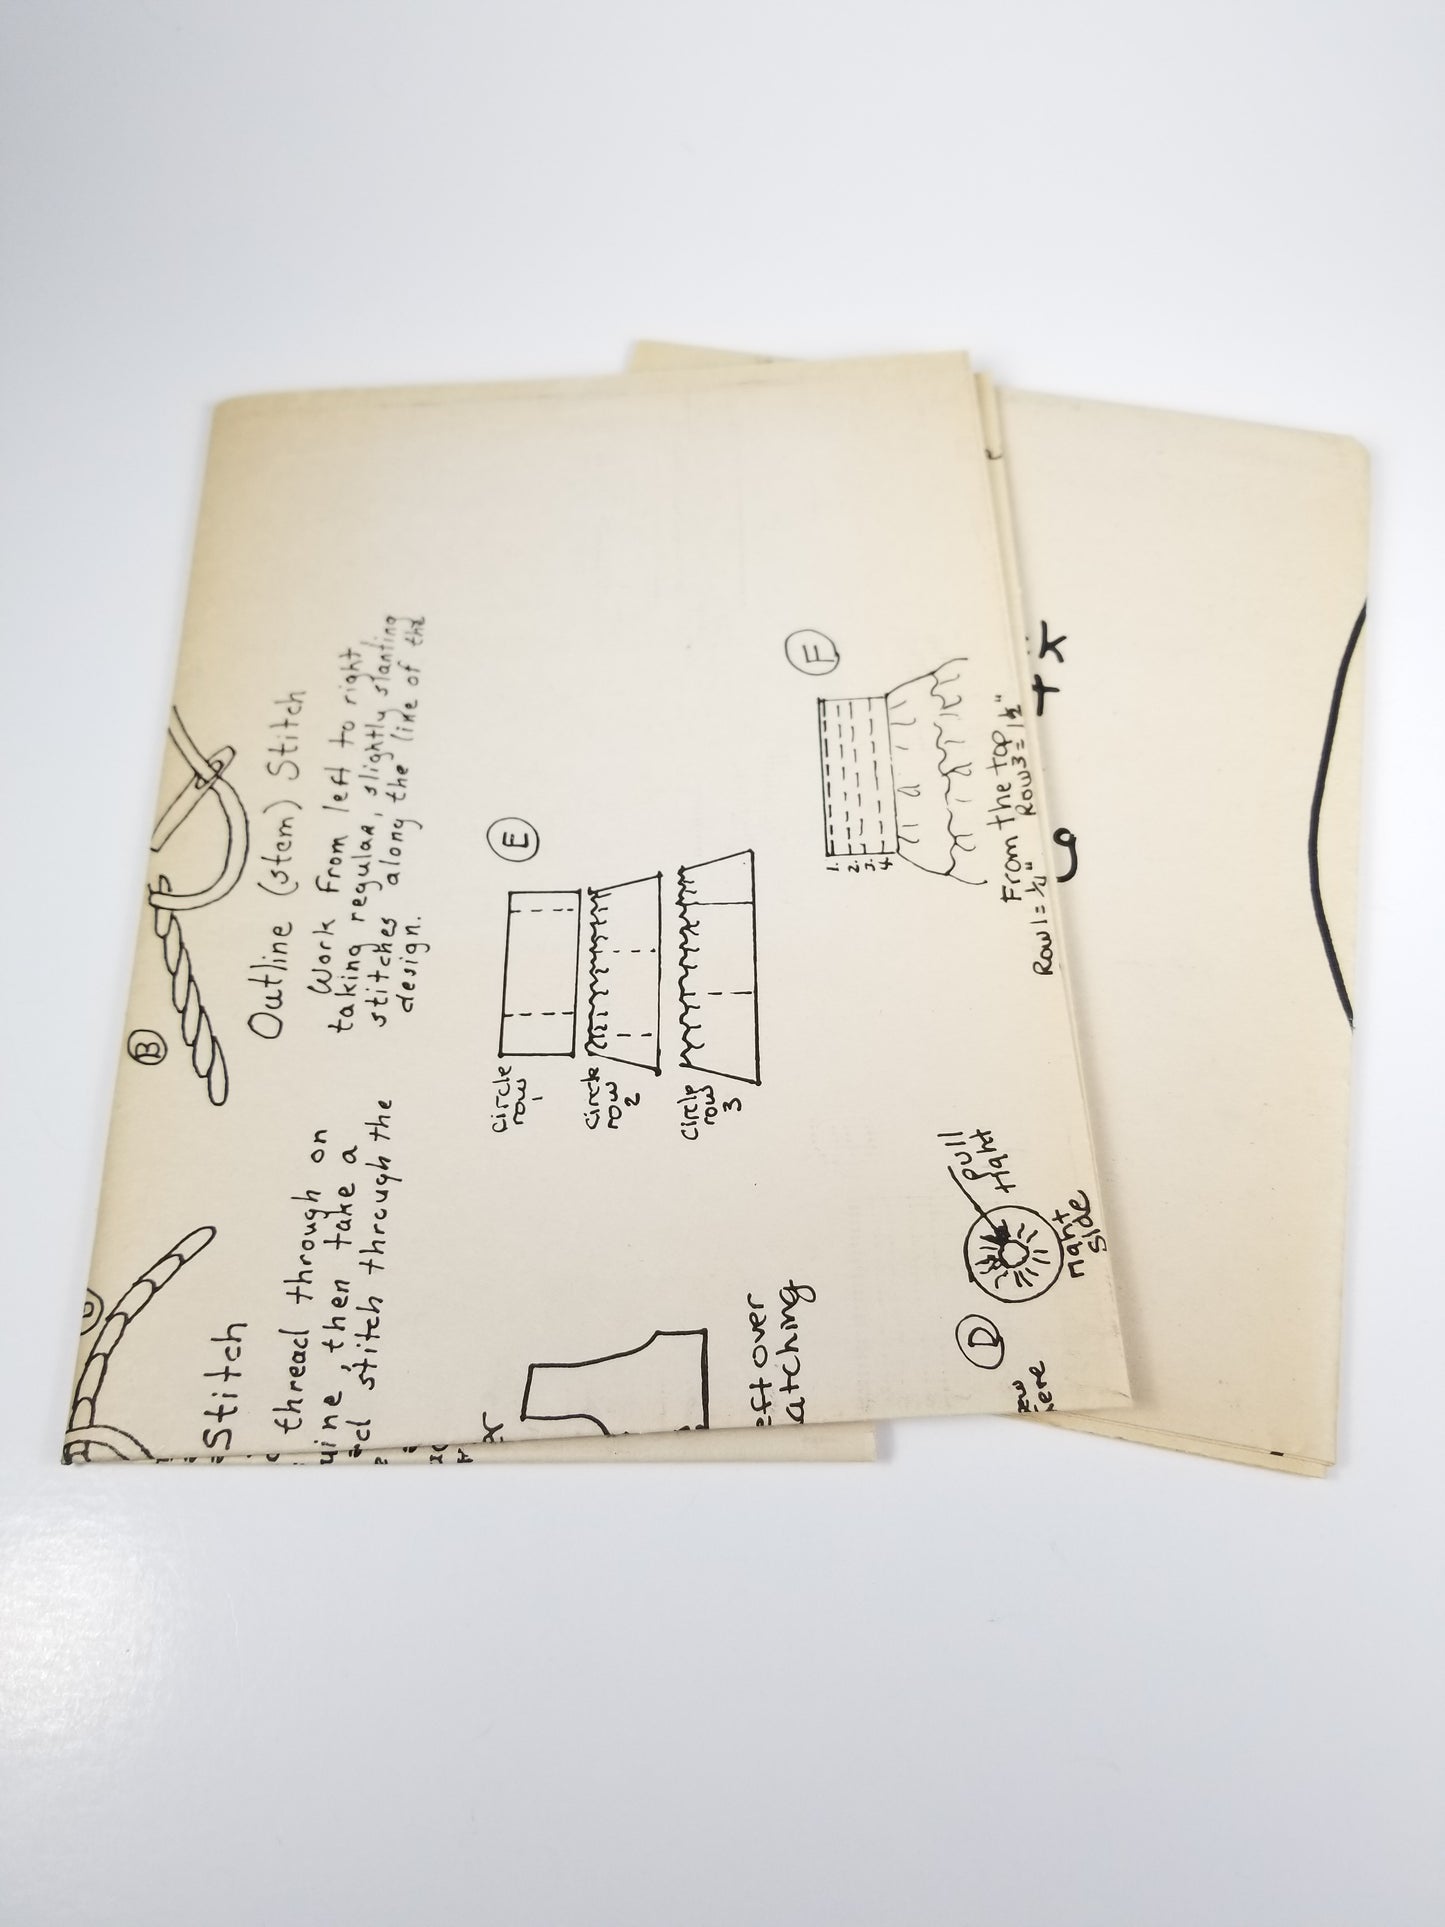 B
Outline (stem) Stitch
Work from left to right
taking regular, slightly slanting
stitches along the line of the
design.
Stitch
thread through on
then take a
stitch through the
E
circle
row
1
circle
row
2
circle
row
3
F
1.
2.
3.
4.
From the top
Row1=¼" Row3=1½"
D
pull
tight
right
side